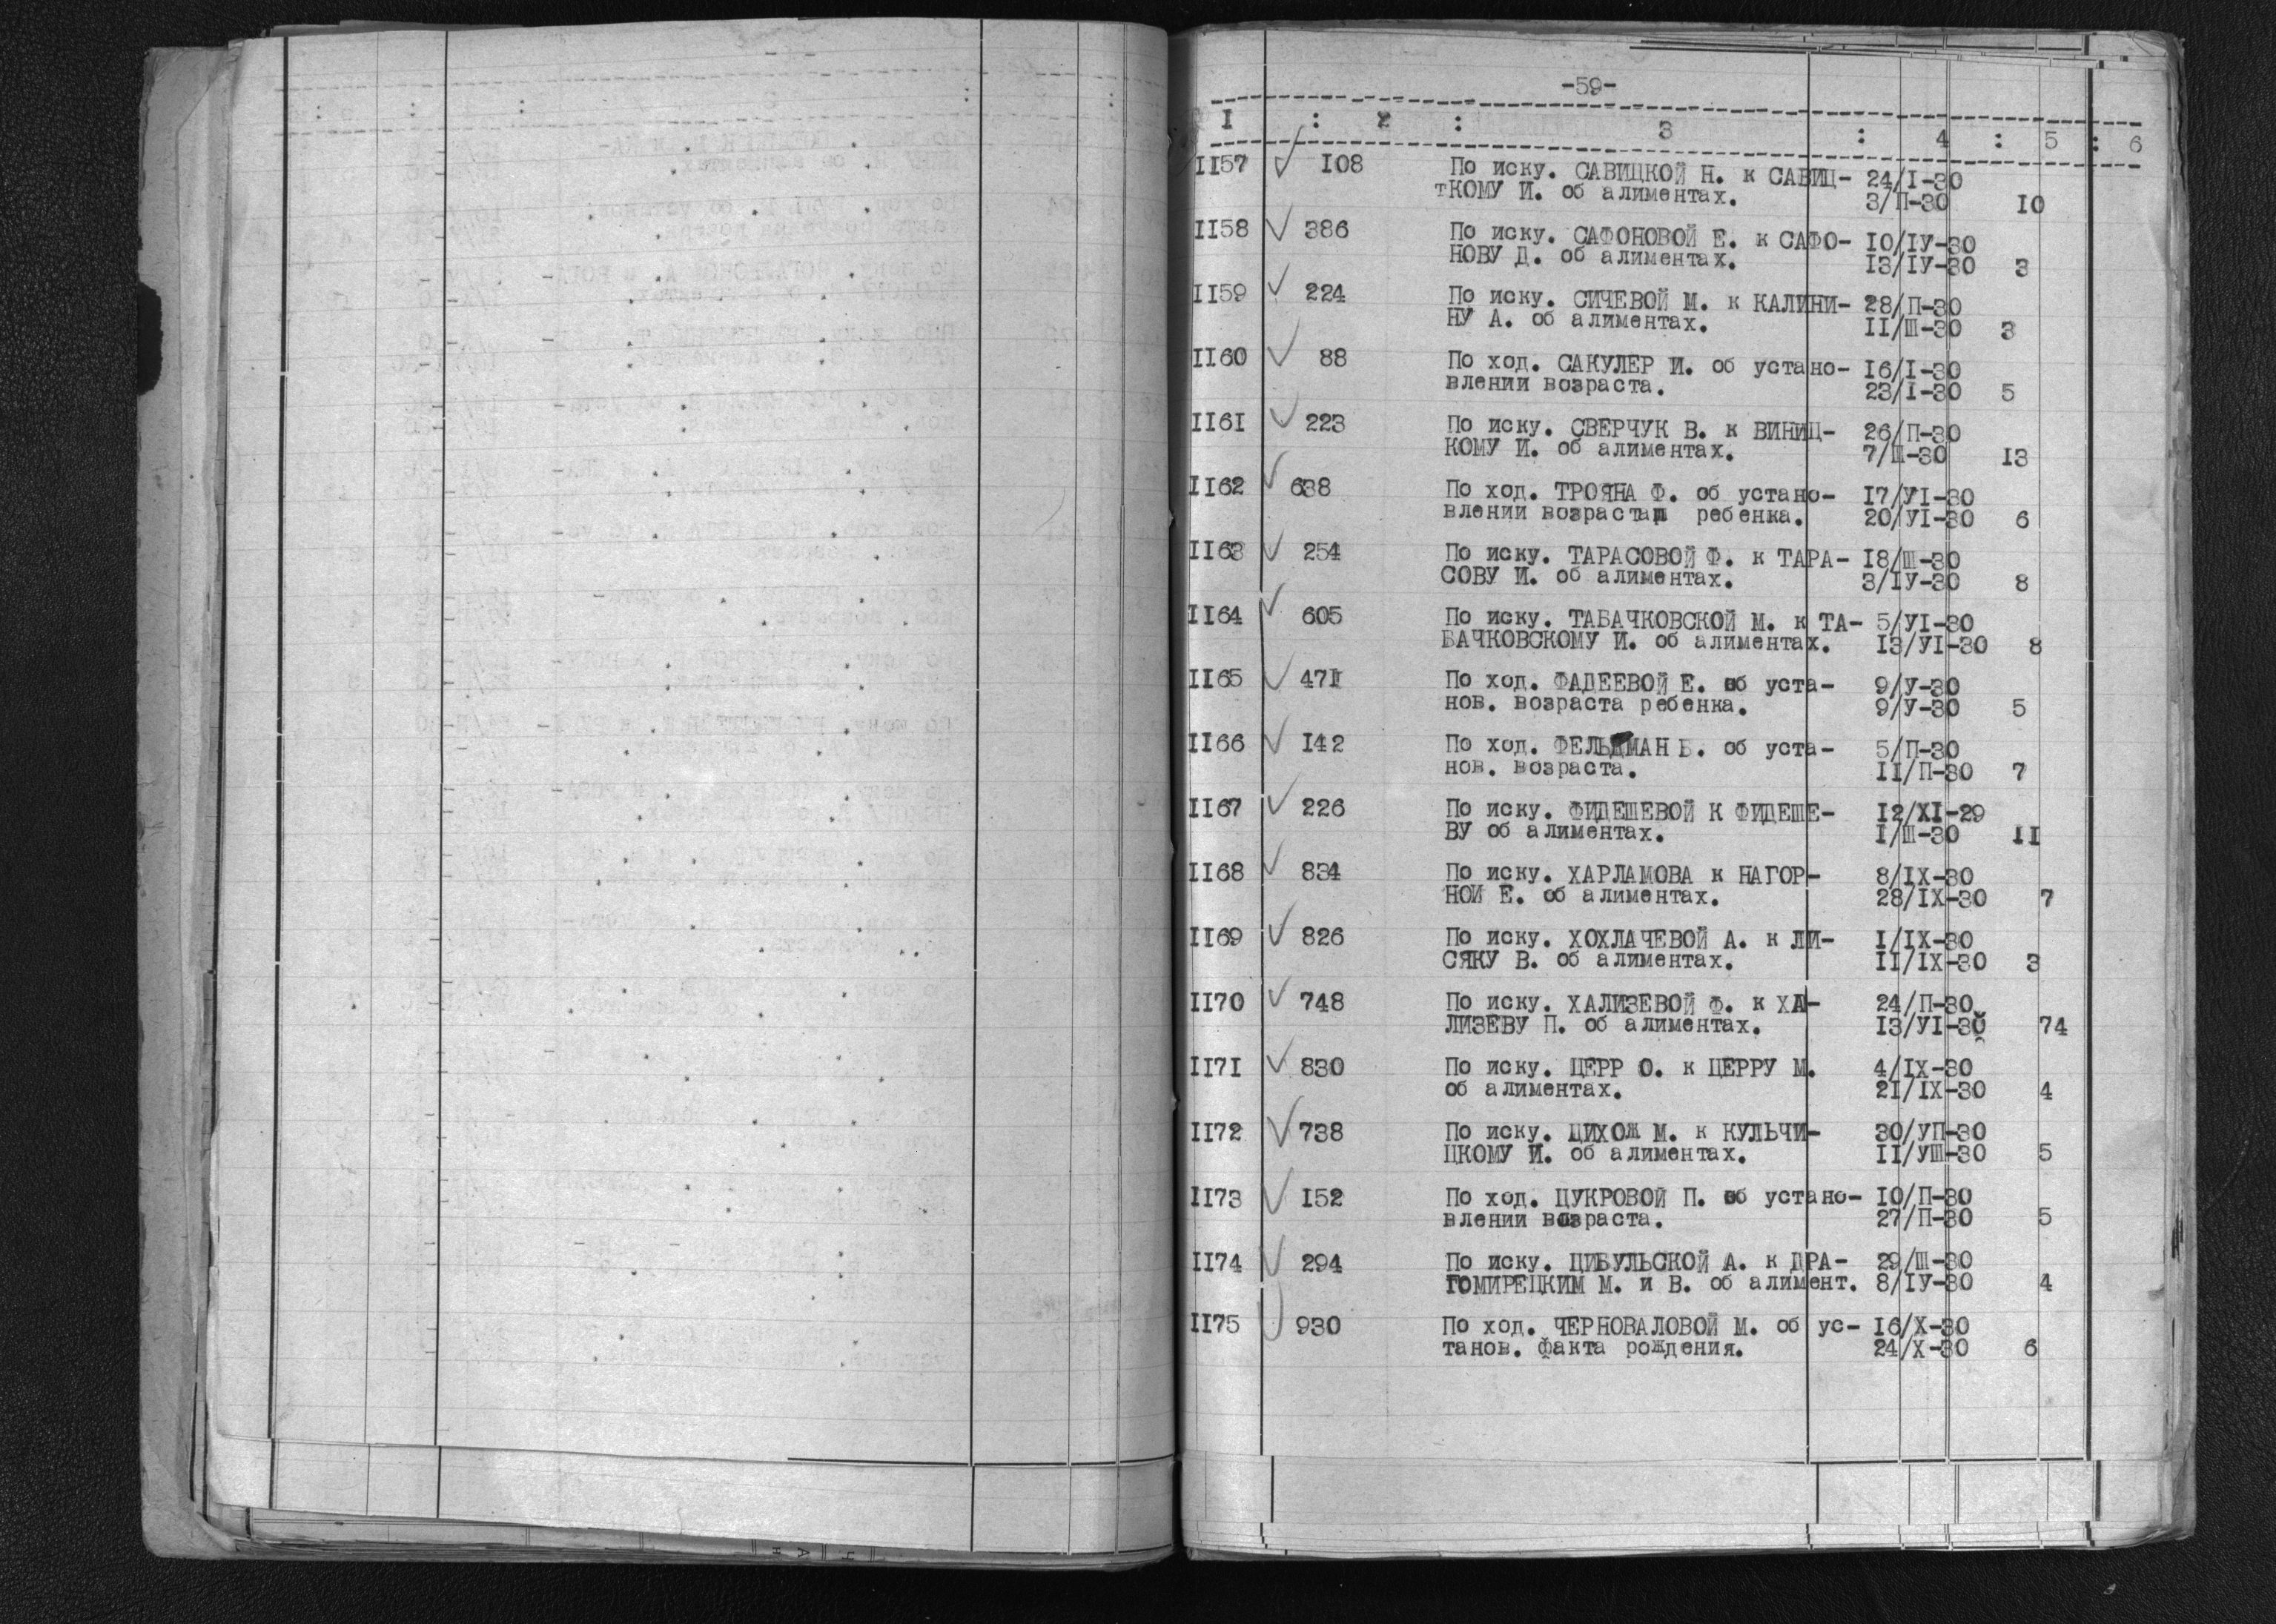 -59-
I : 2 : 3 : 4 : 5 : 6
II57 108 По иску. САВИЦКОЙ Н. к САВИЦ- 24/I-30
тКОМУ И. об алиментах. 3/П-30 IO
II58 386 По иску. САФОНОВОЙ Е. к САФО- IO/IУ-30
НОВУ Д. об алиментах. I3/IУ-30 3
II59 224 По иску. СИЧЕВОЙ М. к КАЛИНИ- 28/П-30
НУ А. об алиментах. II/Ш-30 3
II60 88 По ход. САКУЛЕР И. об устано- I6/I-30
влении возраста. 23/I-30 5
II6I 223 По иску. СВЕРЧУК В. к ВИНИЦ- 26/П-30
КОМУ И. об алиментах. 7/Ш-30 I3
II62 638 По ход. ТРОЯНА Ф. об устано- I7/УI-30
влении возраста ребенка. 20/УI-30 6
II63 254 По иску. ТАРАСОВОЙ Ф. к ТАРА- I8/Ш-30
СОВУ И. об алиментах. 3/IУ-30 8
II64 605 По иску. ТАБАЧКОВСКОЙ М. к ТА- 5/УI-30
БАЧКОВСКОМУ И. об алиментах. I3/УI-30 8
II65 47I По ход. ФАДЕЕВОЙ Е. об уста- 9/У-30
нов. возраста ребенка. 9/У-30 5
II66 I42 По ход. ФЕЛЬДМАН Б. об уста- 5/П-30
нов. возраста. II/П-30 7
II67 226 По иску. ФИДЕШЕВОЙ К ФИДЕШЕ- I2/XI-29
ВУ об алиментах. I/Ш-30 II
II68 834 По иску. ХАРЛАМОВА к НАГОР- 8/IX-30
НОЙ Е. об алиментах. 28/IX-30 7
II69 826 По иску. ХОХЛАЧЕВОЙ А. к ЛИ- I/IX-30
СЯКУ В. об алиментах. II/IX-30 3
II70 748 По иску. ХАЛИЗЕВОЙ Ф. к ХА- 24/П-30
ЛИЗЕВУ П. об алиментах. I3/УI-30 74
II7I 830 По иску. ЦЕРР О. к ЦЕРРУ М. 4/IX-30
об алиментах. 2I/IX-30 4
II72 738 По иску. ЦИХОЖ М. к КУЛЬЧИ- 30/УП-30
ЦКОМУ И. об алиментах. II/УШ-30 5
II73 I52 По ход. ЦУКРОВОЙ П. об устано- IO/П-30
влении возраста. 27/П-30 5
II74 294 По иску. ЦИБУЛЬСКОЙ А. к ДРА- 29/Ш-30
ГОМИРЕЦКИМ М. и В. об алимент. 8/IУ-30 4
II75 930 По ход. ЧЕРНОВАЛОВОЙ М. об ус- I6/X-30
танов. факта рождения. 24/X-30 6